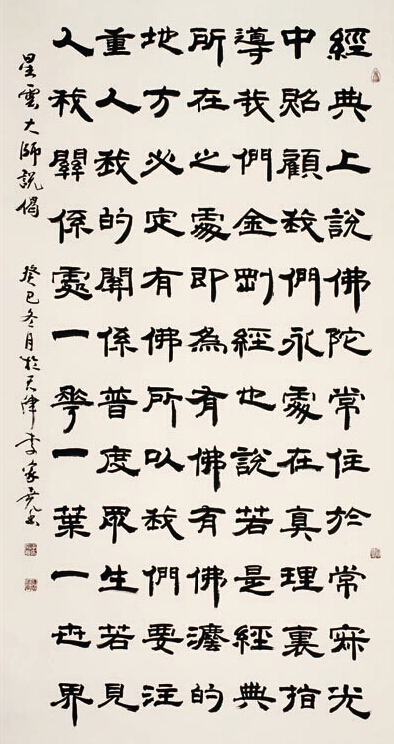 經典上說佛陀常住於常寂光
中照顧我們永處在真理裏指
導我們金剛經也說若是經典
所在之處即為有佛有佛灋的
地方必定有佛所以我們要注
重人我的關係普度眾生若見
人我關係處一華一葉一世界
星雲大師說偈 癸巳冬月於天津李家堯書